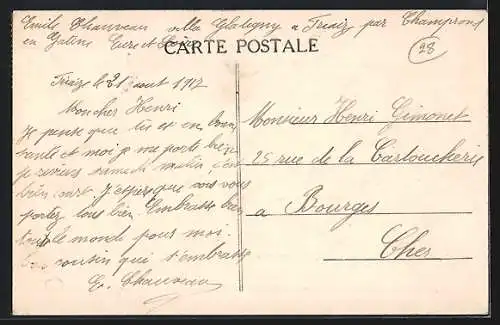 Emile Chauveau villa Glatigny a Friaize par Champrond
en Gatine Eure et Loire
CARTE POSTALE
28
Friaize le 21 aout 1917
Mon cher Henri
Je pense que tu es en bonne
santé et moi je me porte bien
je reviens samedi matin, c'est
bien court. J'espère que vous vous
portez tous bien. Embrasse bien
tout le monde pour moi.
cousin qui t'embrasse
E. Chauveau
Monsieur Henri Gimonet
25 rue de la Cartoucherie
a Bourges
Cher